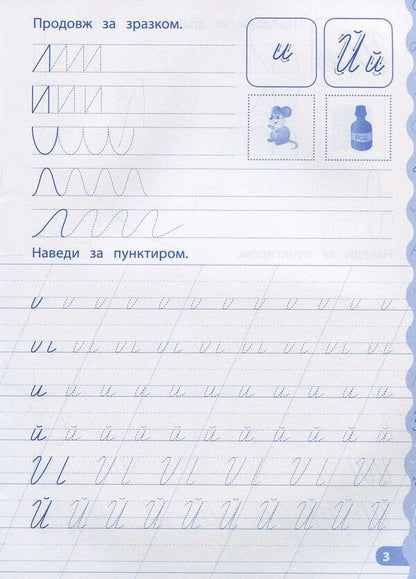 Продовж за зразком.
и Й й
Наведи за пунктиром.
и и и и и и и и и и и и
й й й й й й й й й й й й
Й Й Й Й Й Й Й Й Й Й
3